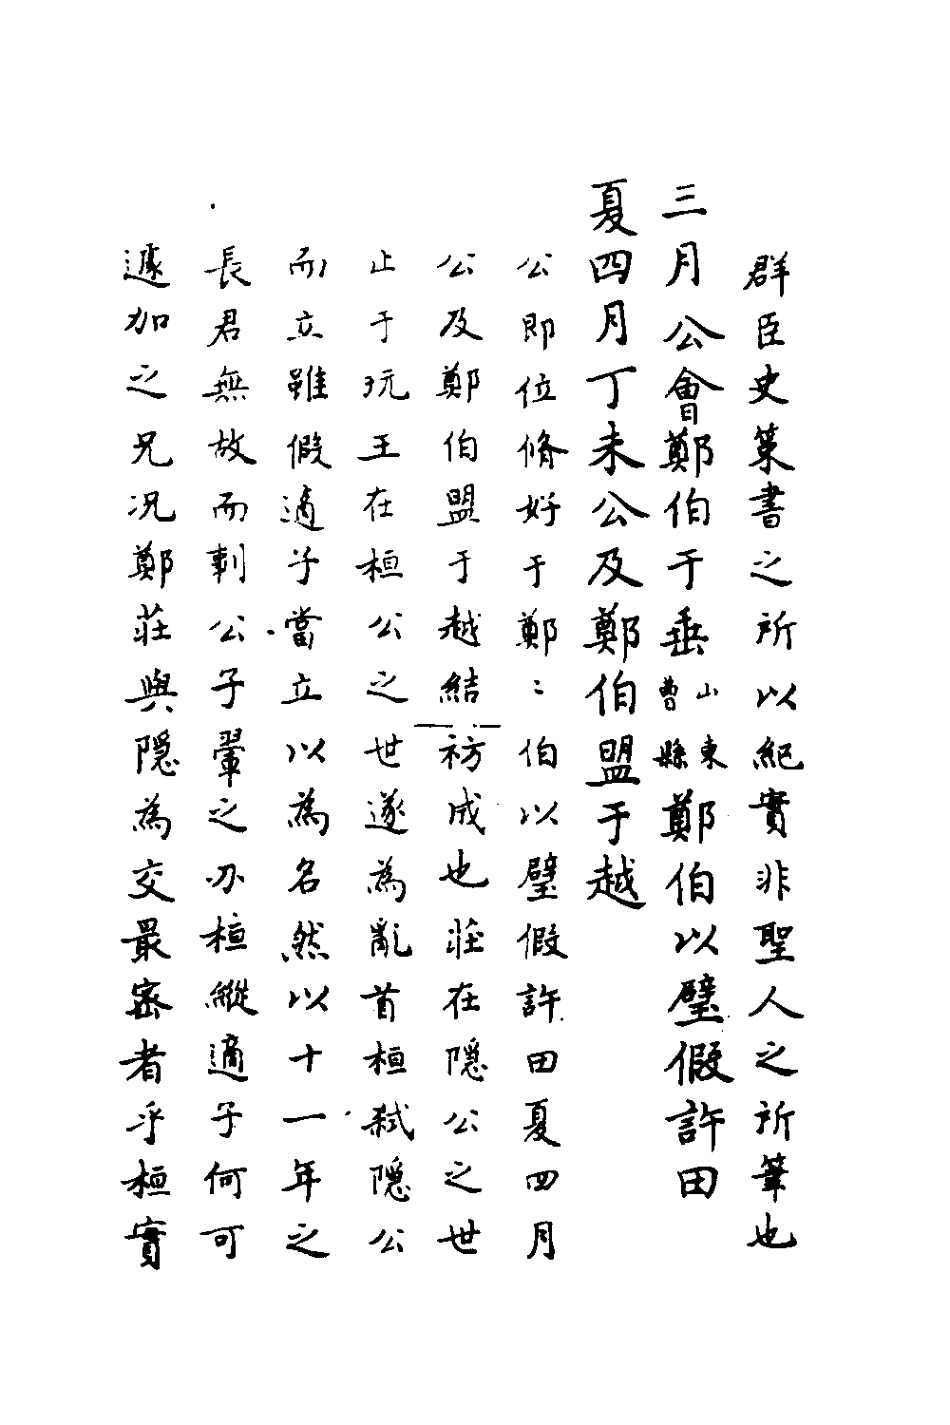 群臣史策書之所以紀實非聖人之所筆也
三月公會鄭伯于垂山東曹縣鄭伯以璧假許田
夏四月丁未公及鄭伯盟于越
公即位脩好于鄭〻伯以璧假許田夏四月
公及鄭伯盟于越結祊成也莊在隱公之世
止于玩王在桓公之世遂為亂首桓弒隱公
而立雖假適子當立以為名然以十一年之
長君無故而刺公子翬之亦桓縱適子何可
遽加之兄况鄭莊與隱為交最密者乎桓實